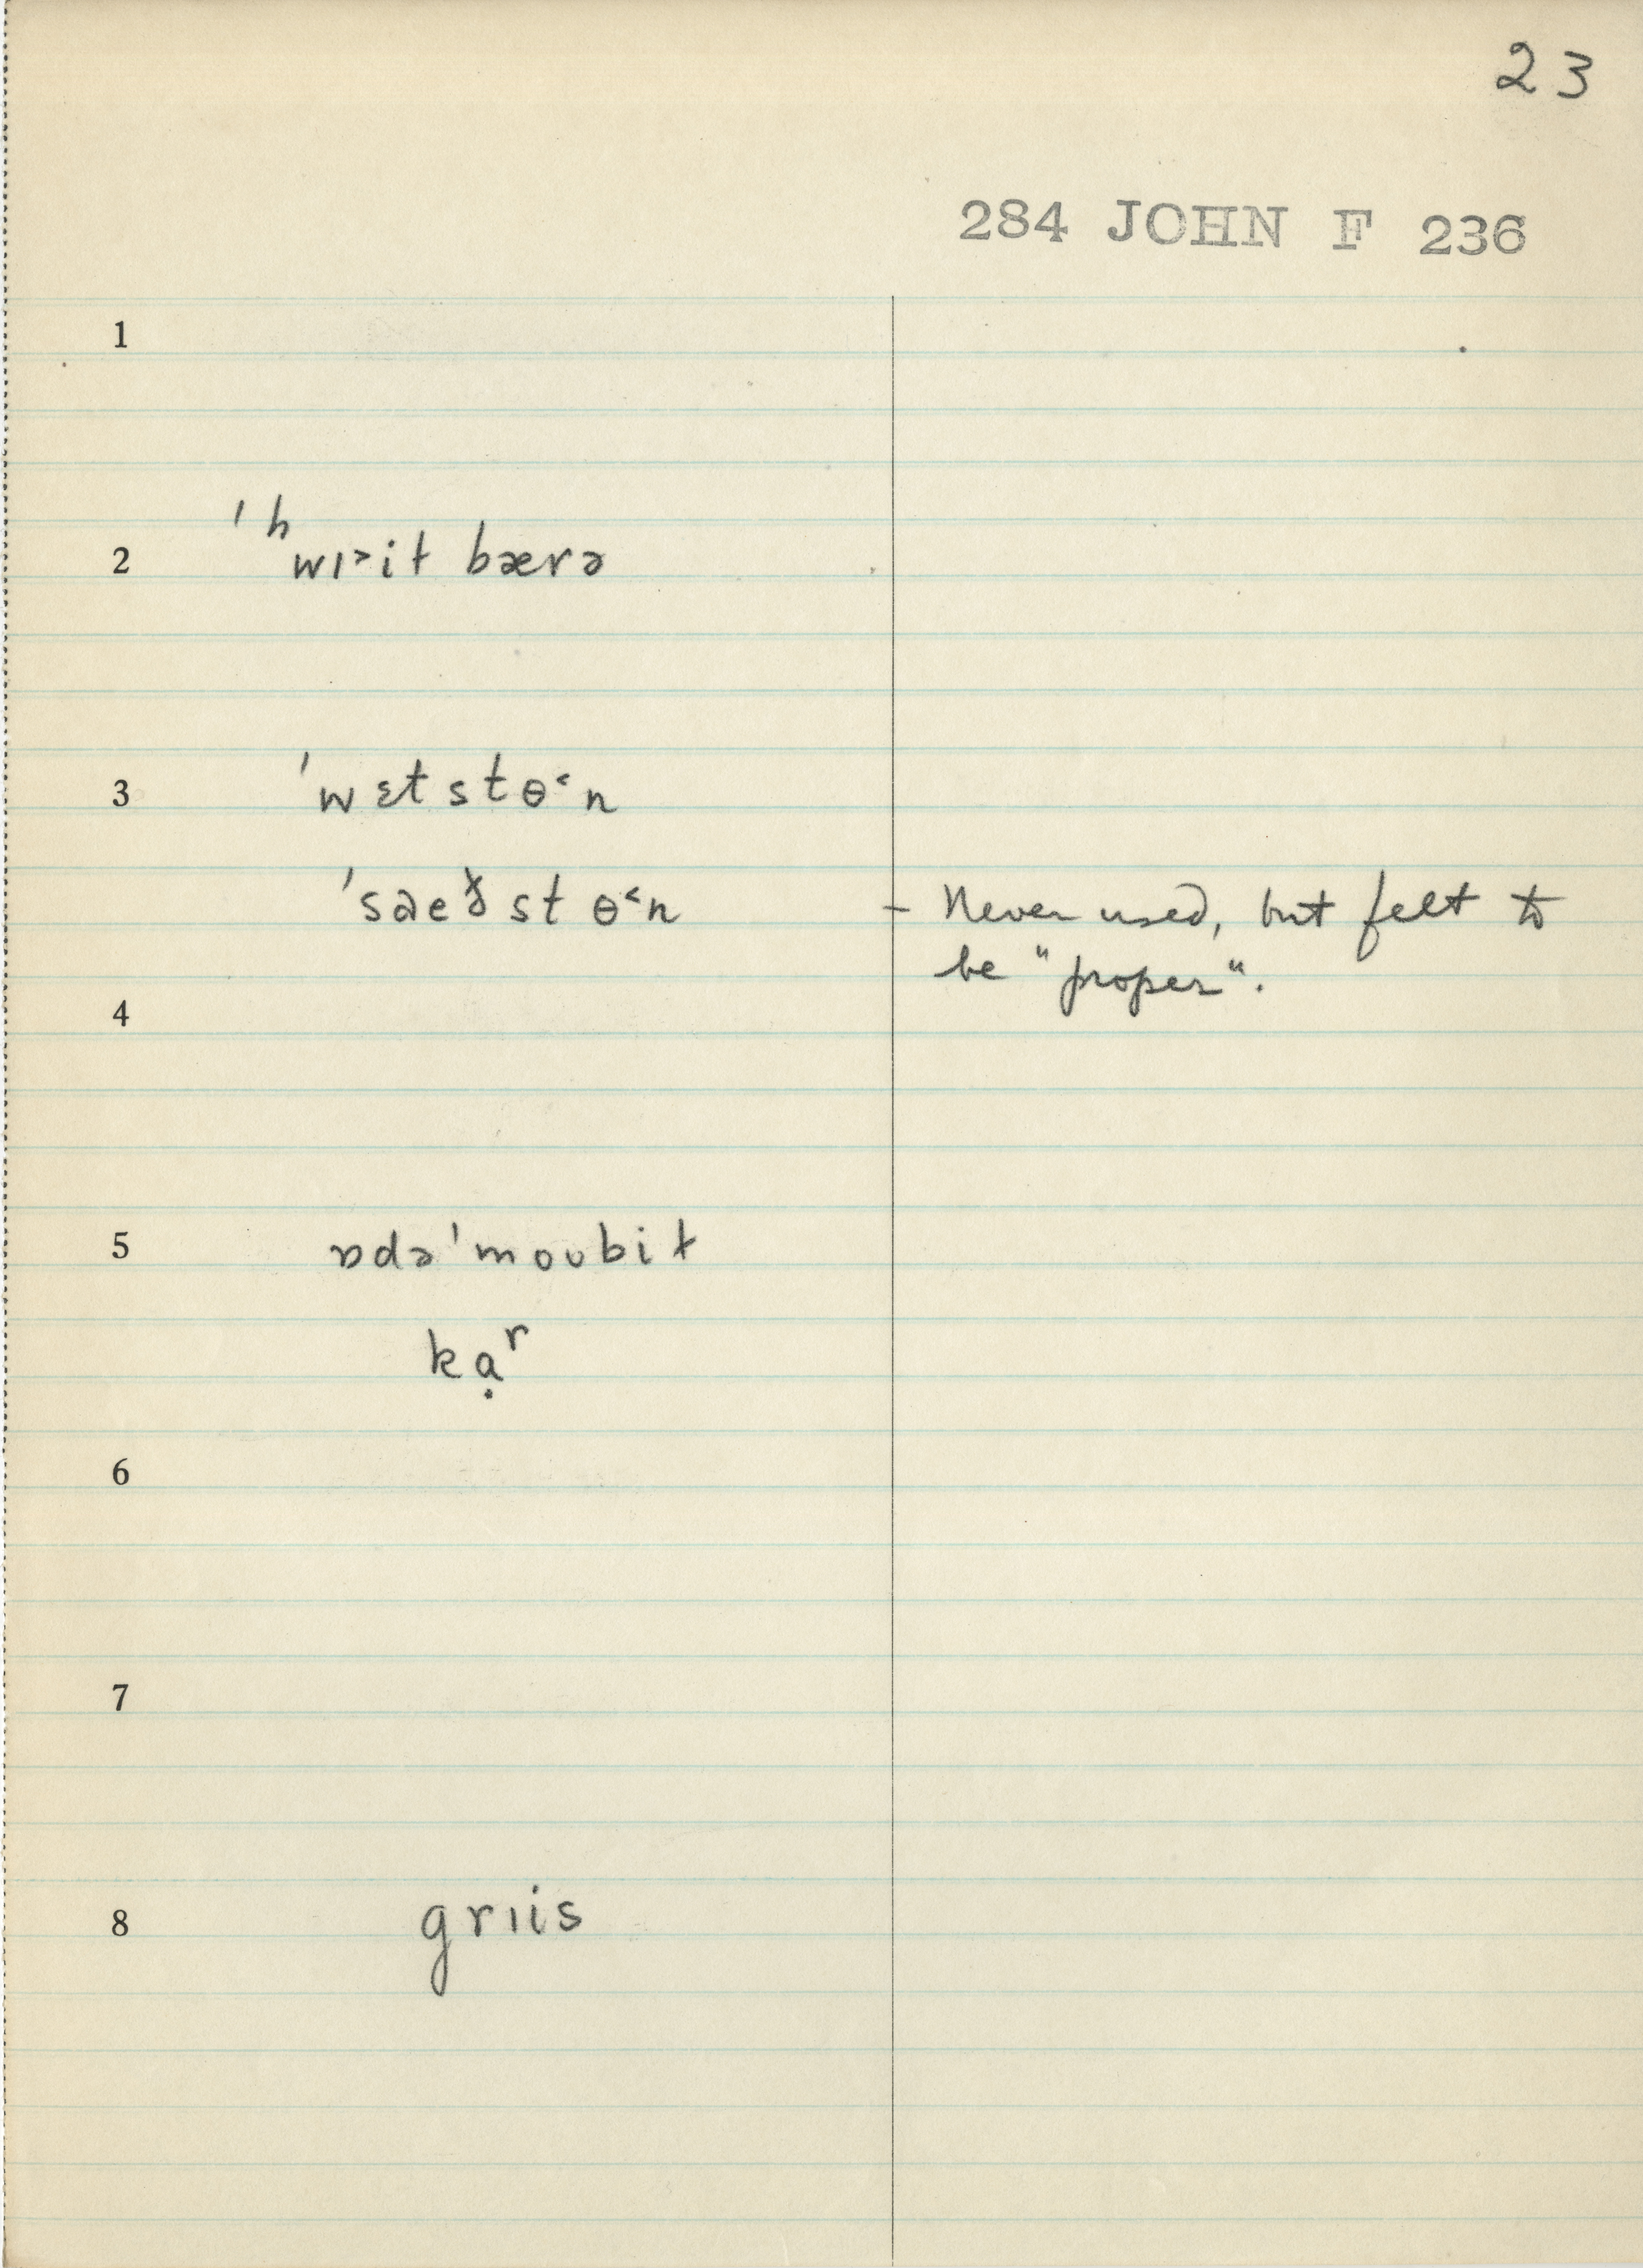 23
284 JOHN F 236
1
2 ˈʰwɪ˃it bærə
3 ˈwɛtstɵ˂n
ˈsaeɤ̯stɵ˂n – Never used, but felt to
be "proper".
4
5 ɒdəˈmoʊbit
kạʳ
6
7
8 grɪis